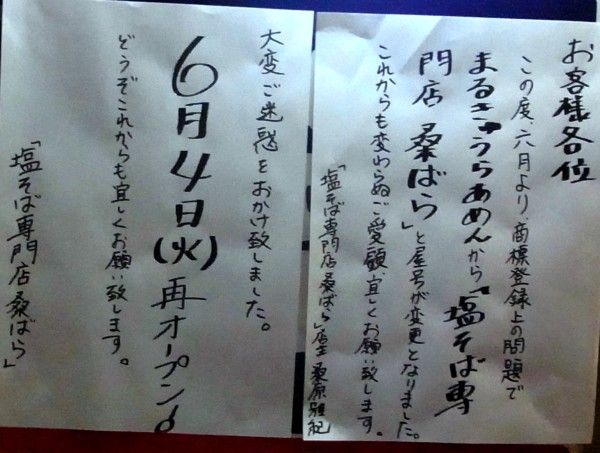 お客様各位
この度、六月より商標登録上の問題で
まるきゅうらあめんから「塩そば専
門店 桑ばら」と屋号が変更となりました。
これからも変わらぬご愛顧、宜しくお願い致します。
「塩そば専門店桑ばら」店主 桑原雅紀
大変ご迷惑をおかけ致しました。
6月4日(火)再オープン!
どうぞこれからも宜しくお願い致します。
「塩そば専門店桑ばら」